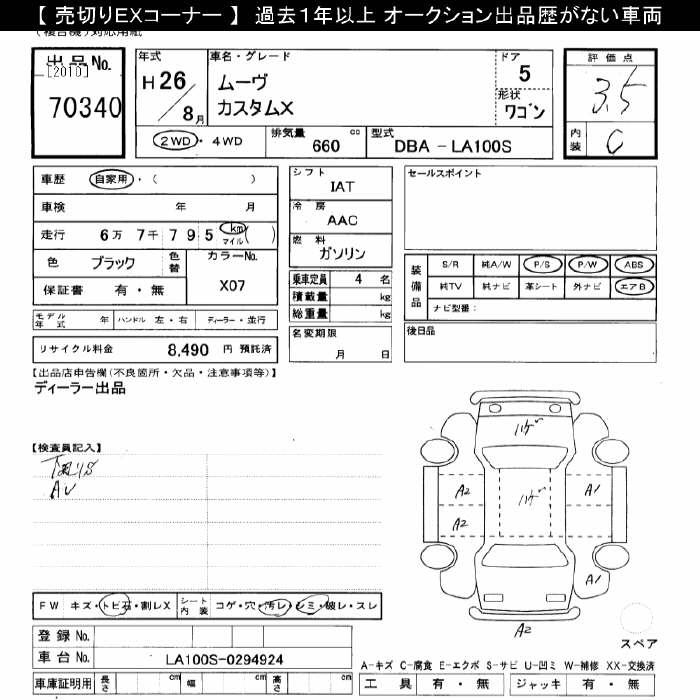 【 売切りEXコーナー 】 過去1年以上 オークション出品歴がない車両
(複合機)対応用紙
出品No.
[2010]
70340
年式
H26
/8月
車名・グレード
ムーヴ
カスタムX
ドア
5
形状
ワゴン
評価点
3.5
内装
C
2WD・4WD
排気量
660 cc
型式
DBA - LA100S
車歴 自家用・( )
車検 年 月
走行 6万 7千 7 9 5 km マイル( )
色 ブラック
色替
カラーNo.
X07
保証書 有・無
モデル年式 年 ハンドル 左・右 ディーラー・並行
リサイクル料金 8,490 円 預託済
シフト
IAT
冷房
AAC
燃料
ガソリン
乗車定員 4 名
積載量 kg
総重量 kg
名変期限
月 日
セールスポイント
装備品
S/R 純A/W P/S P/W ABS
純TV 純ナビ 革シート 外ナビ エアB
ナビ型番:
後日品
【出品店申告欄(不良個所・欠品・注意事項等)】
ディーラー出品
【検査員記入】
AU
ハゲ
ハゲ
A2
A2
A1
A1
A2
スペア
FW キズ・トビ石・割レX
シート内装 コゲ・穴・汚レ・シミ・破レ・スレ
登録No.
車台No. LA100S-0294924
車庫証明用 長さ cm 幅 cm 高さ cm
A-キズ C-腐食 E-エクボ S-サビ U-凹ミ W-補修 XX-交換済
工具 有・無 ジャッキ 有・無